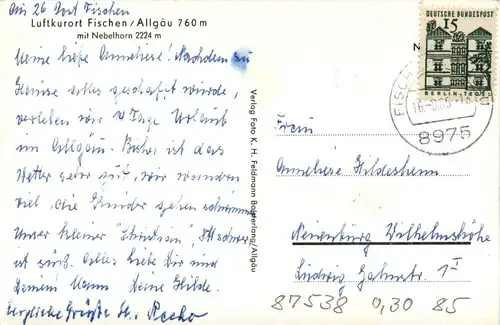 Luftkurort Fischen/Allgäu 760 m
mit Nebelhorn 2224 m
Meine liebe Anneliese! Nachdem zu
Hause alles geschafft wurde,
verleben wir 14 Tage Urlaub
im Allgäu. Bisher ist das
Wetter sehr gut, wir wandern
viel, die Kinder gehen schwimmen
Unser kleiner "Christian",
ist süß. Alles liebe Dir und
Deinem Mann Deine Hilde.
herzliche Grüße
Verlag Foto K. H. Feldmann Balderschwang/Allgäu
DEUTSCHE BUNDESPOST
15
BERLIN-TEGEL
FISCH
8975
Frau
Anneliese Hildesheim
Neuenbürg Wilhelmshöhe
Ludwig
87538 0,30 85